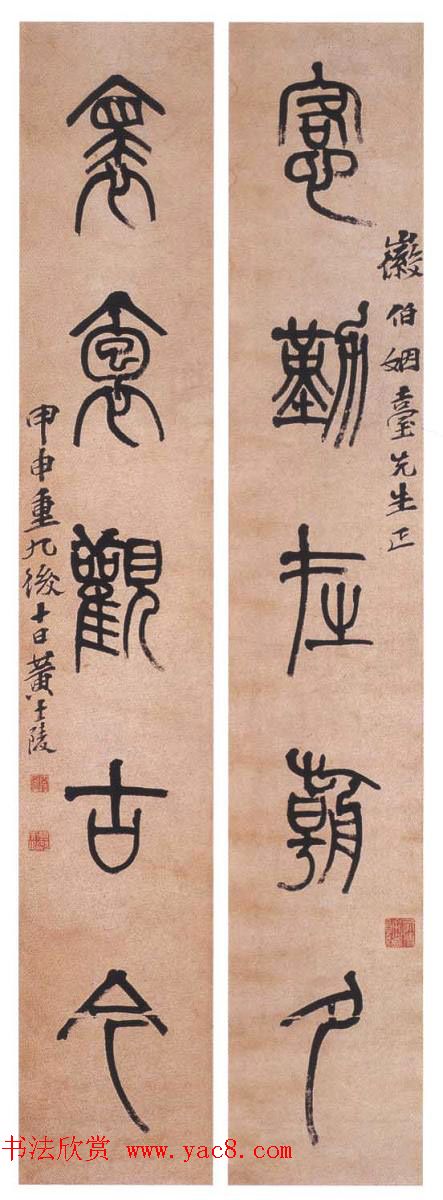 徽伯姻臺先生正
愙勤在朝夕
褱袌觀古今
甲申重九後十日黃士陵
书法欣赏 www.yac8.com